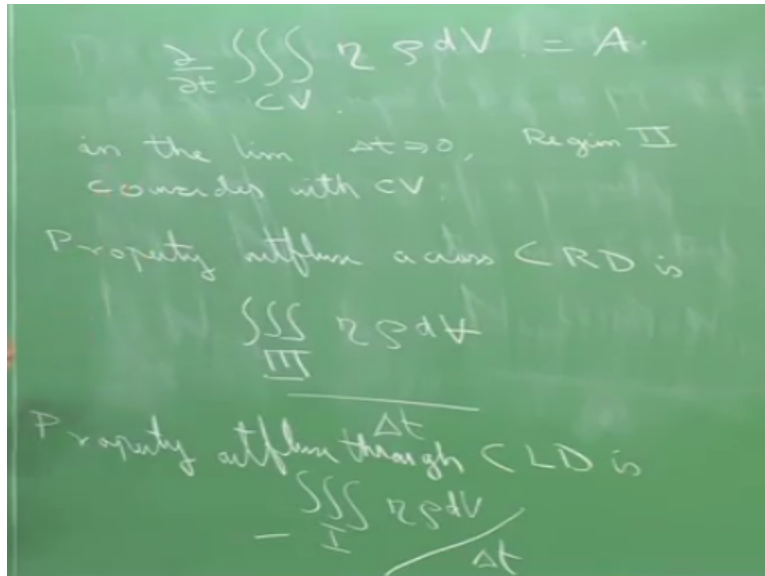 ∂/∂t ∭_CV η ρ dV = A.
in the lim Δt→0, Region II
coincides with CV.
Property outflux across CRD is
∭_III η ρ dV
Δt
Property outflux through CLD is
- ∭_I η ρ dV / Δt